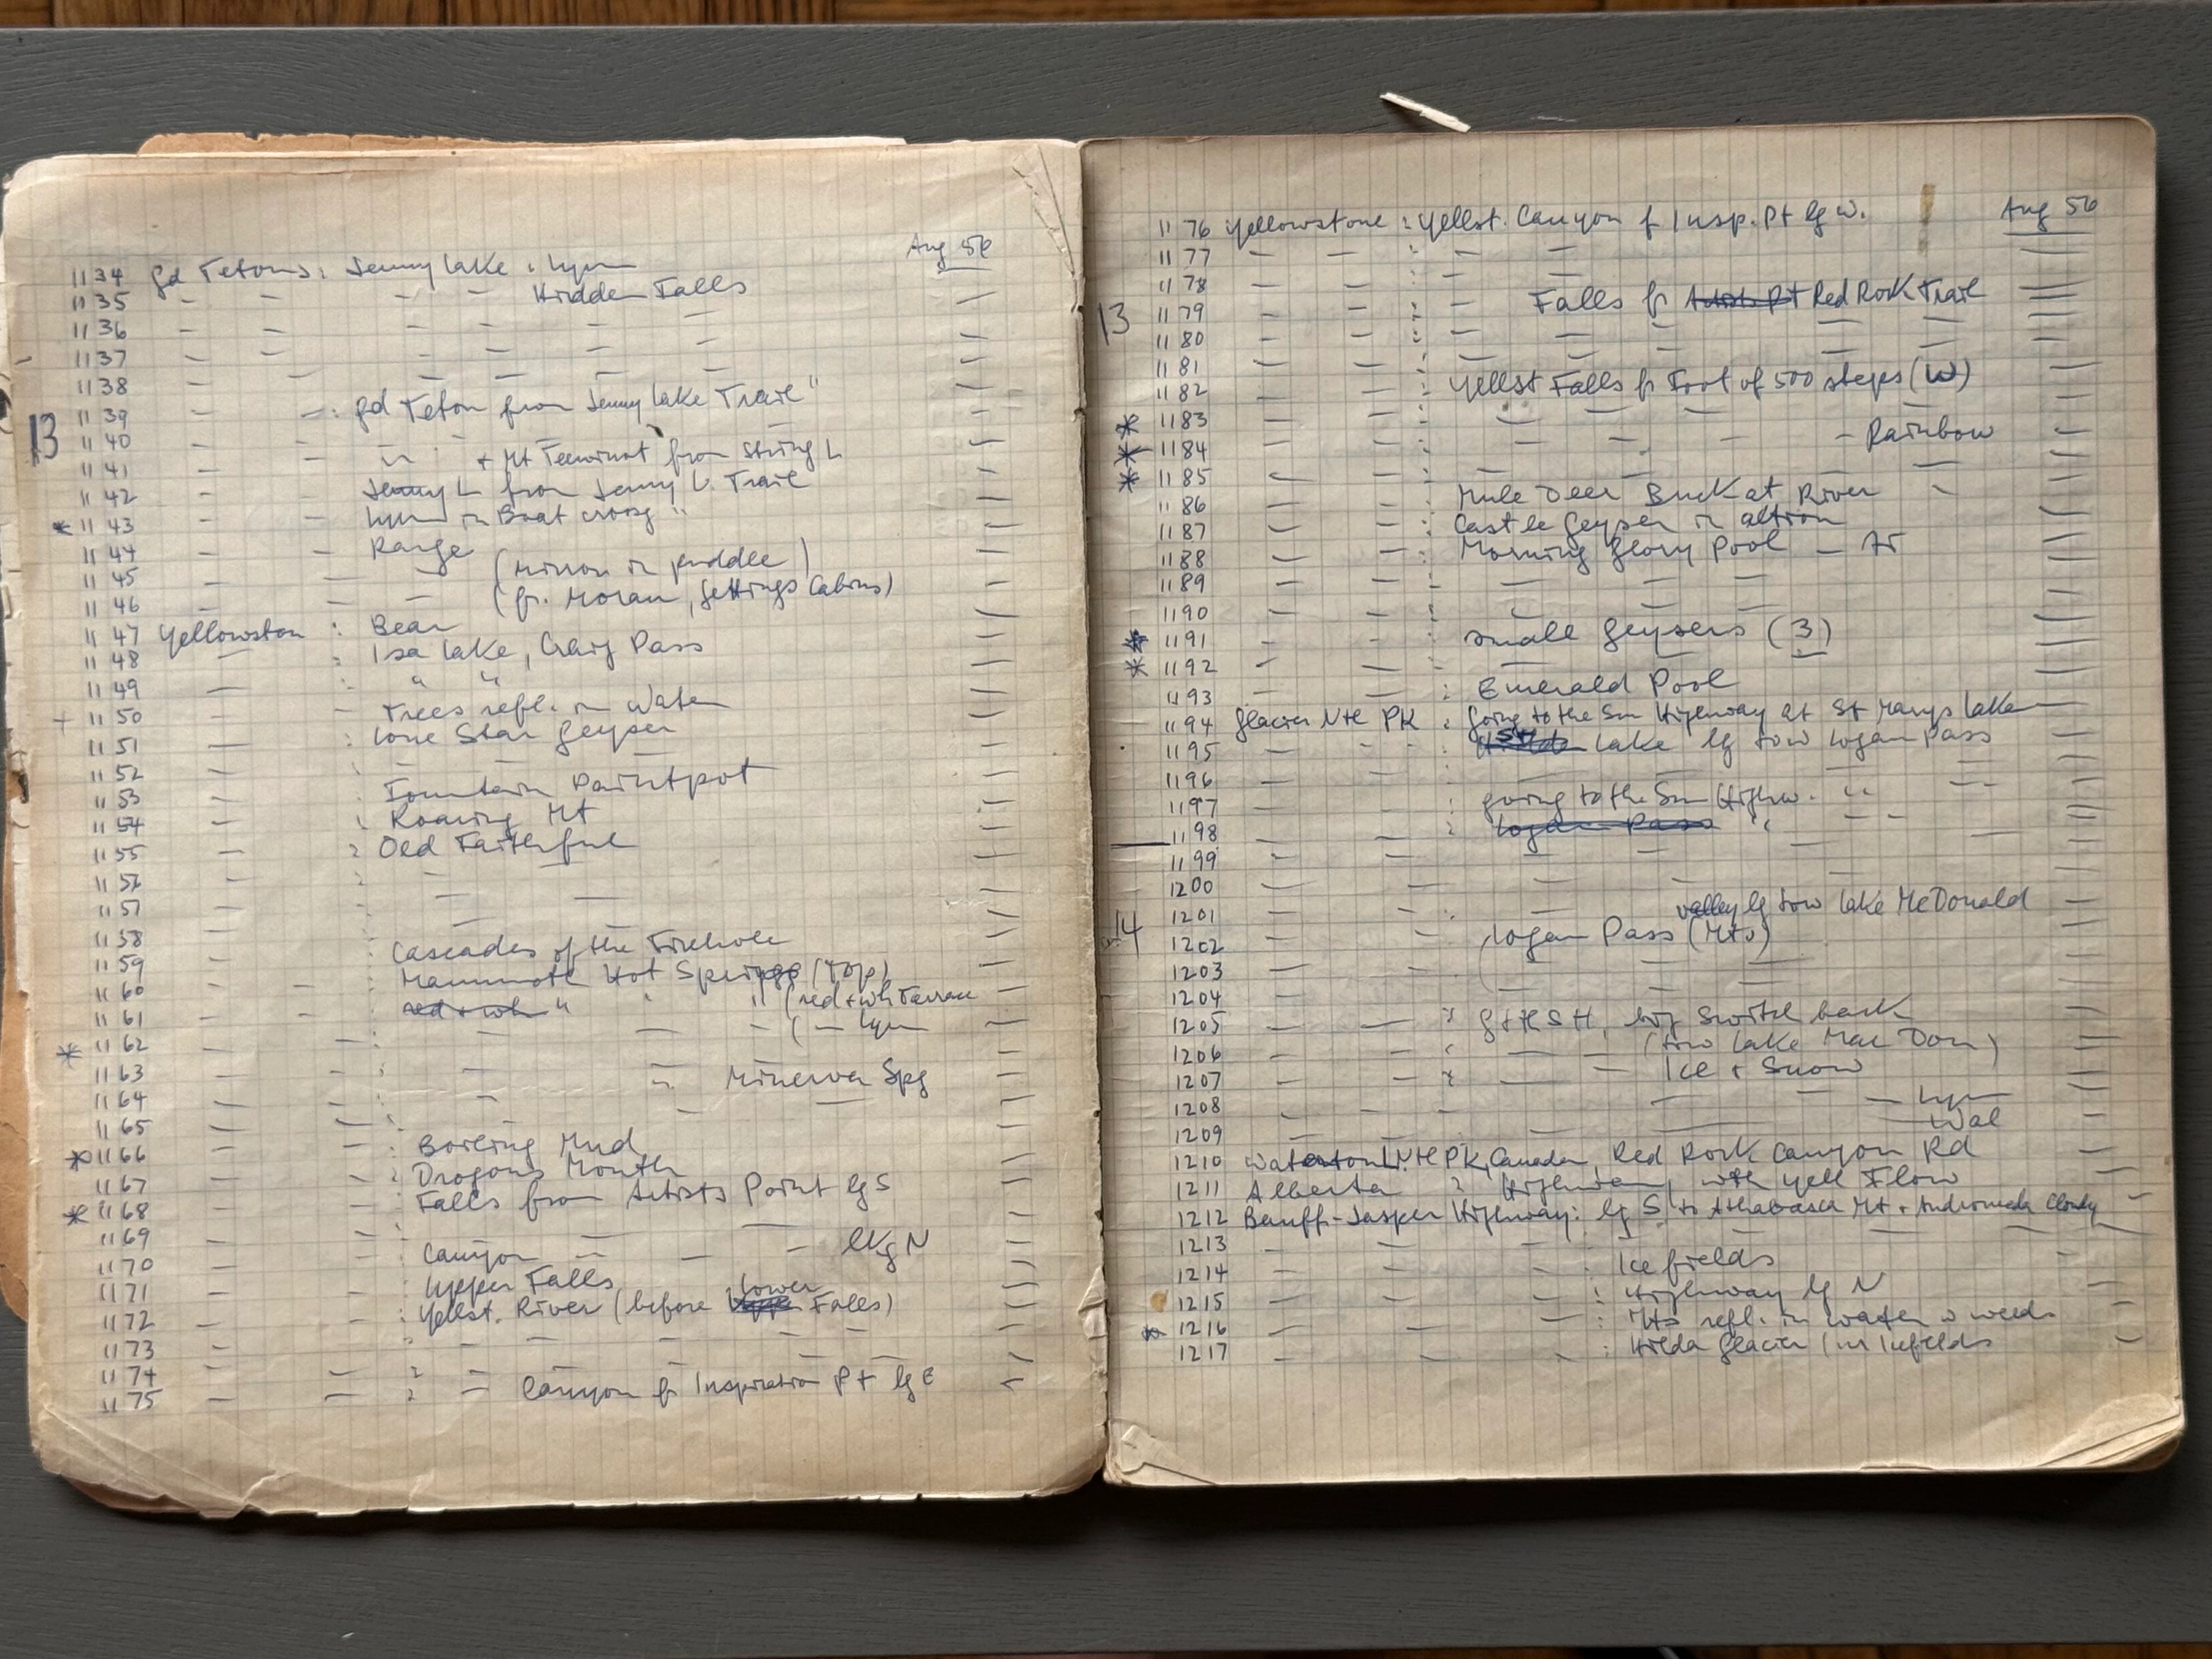 Aug 56
1134 Gd Tetons: Jenny Lake: Lynn
1135 - - - - Hidden Falls -
1136 - - - - - - -
1137 - - - - - - -
1138 - - - - - - -
1139 - -: Gd Teton from Jenny Lake Trail" -
13
1140 - - " + Mt Teewinot from String L -
1141 - - Jenny L from Jenny L. Trail -
1142 - - Lynn in Boat crossg " -
* 1143 - - Range -
1144 - - - (Mirror in puddle) -
1145 - - - (fr. Moran, Jettings Cabins) -
1146 -
1147 Yellowston : Bear -
1148 - : Isa Lake, Craig Pass -
1149 - : " " -
+ 1150 - - Trees refl. in Water -
1151 - : Lone Star Geyser -
1152 - : - - -
1153 - : Fountain Paintpot -
1154 - : Roaring Mt -
1155 - : Old Faithful -
1156 - : - -
1157 - - -
1158 - Cascades of the Firehole -
1159 - Mammoth Hot Springs (top) -
1160 - - red + wh " " " (red + wh Terrace -
1161 - - - - - ( - Lynn -
* 1162 - -
1163 - - : - " Minerva Spg -
1164 - - - - - -
1165 - - :
* 1166 - - : Boiling Mud -
1167 - - : Dragons Mouth -
* 1168 - - Falls from Artists Point lg S -
1169 - - - - -
1170 - - : Canyon - - - lkg N -
1171 - - : Upper Falls -
1172 - - : Yellst. River (before Upper Lower Falls) -
1173 - - - - - - - -
1174 - - : - - - - -
1175 - - : - Canyon fr Inspiration Pt lg E -
1176 Yellowstone : Yellst. Canyon f Insp. Pt lg W. Aug 56
1177 - - : - - - -
1178 - - : - -
13
1179 - - : - Falls fr Artists Pt Red Rock Trail -
1180 - - : - - - - -
1181 - - : - - - - -
1182 - - : Yellst Falls fr Foot of 500 steps (W) -
* 1183 - - : - - - -
* 1184 - - : - - - - Rainbow -
* 1185 - - - - - -
1186 - - : Mule Deer Buck at River -
1187 - - : Castle Geyser in action -
1188 - - : Morning Glory Pool -
1189 - - - - - -
1190 - - : - - - -
* 1191 - - : Small Geysers (3) -
* 1192 - - : - - -
1193 - - : Emerald Pool -
1194 Glacier Ntl PK : Going to the Sun Highway at St Marys Lake -
1195 - - - lake lg tow Logan Pass -
1196 - - - - - -
1197 - - : Going to the Sun Highw. " - -
1198 - - : Logan Pass " - -
1199 - - - - -
1200 - - - - -
14
1201 - - : - valley lg tow Lake McDonald -
1202 - - Logan Pass (Mts) -
1203 - - - - - -
1204 - - - - - -
1205 - - : G t t S H, big Switch back -
1206 - - : - - (tow Lake Mac Don) -
1207 - - : - - Ice + Snow -
1208 - - - - - - Lynn -
1209 - - - Wal -
1210 Waterton L. Ntl PK, Canada, Red Rock Canyon Rd -
1211 Alberta : Highway, with yell Flow -
1212 Banff-Jasper Highway: lg S to Athabasca Mt + Andromeda cloudy -
1213 - - - - - - -
1214 - - - : Icefields -
1215 - - - : Highway lg N -
* 1216 - - - : Mts refl. in water w weeds -
1217 - - - : Hilda Glacier (nr Icefields -